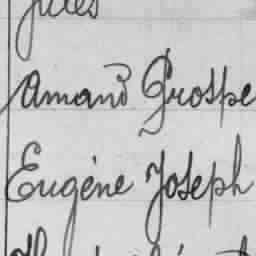 Jules
Amand Prospe
Eugène Joseph